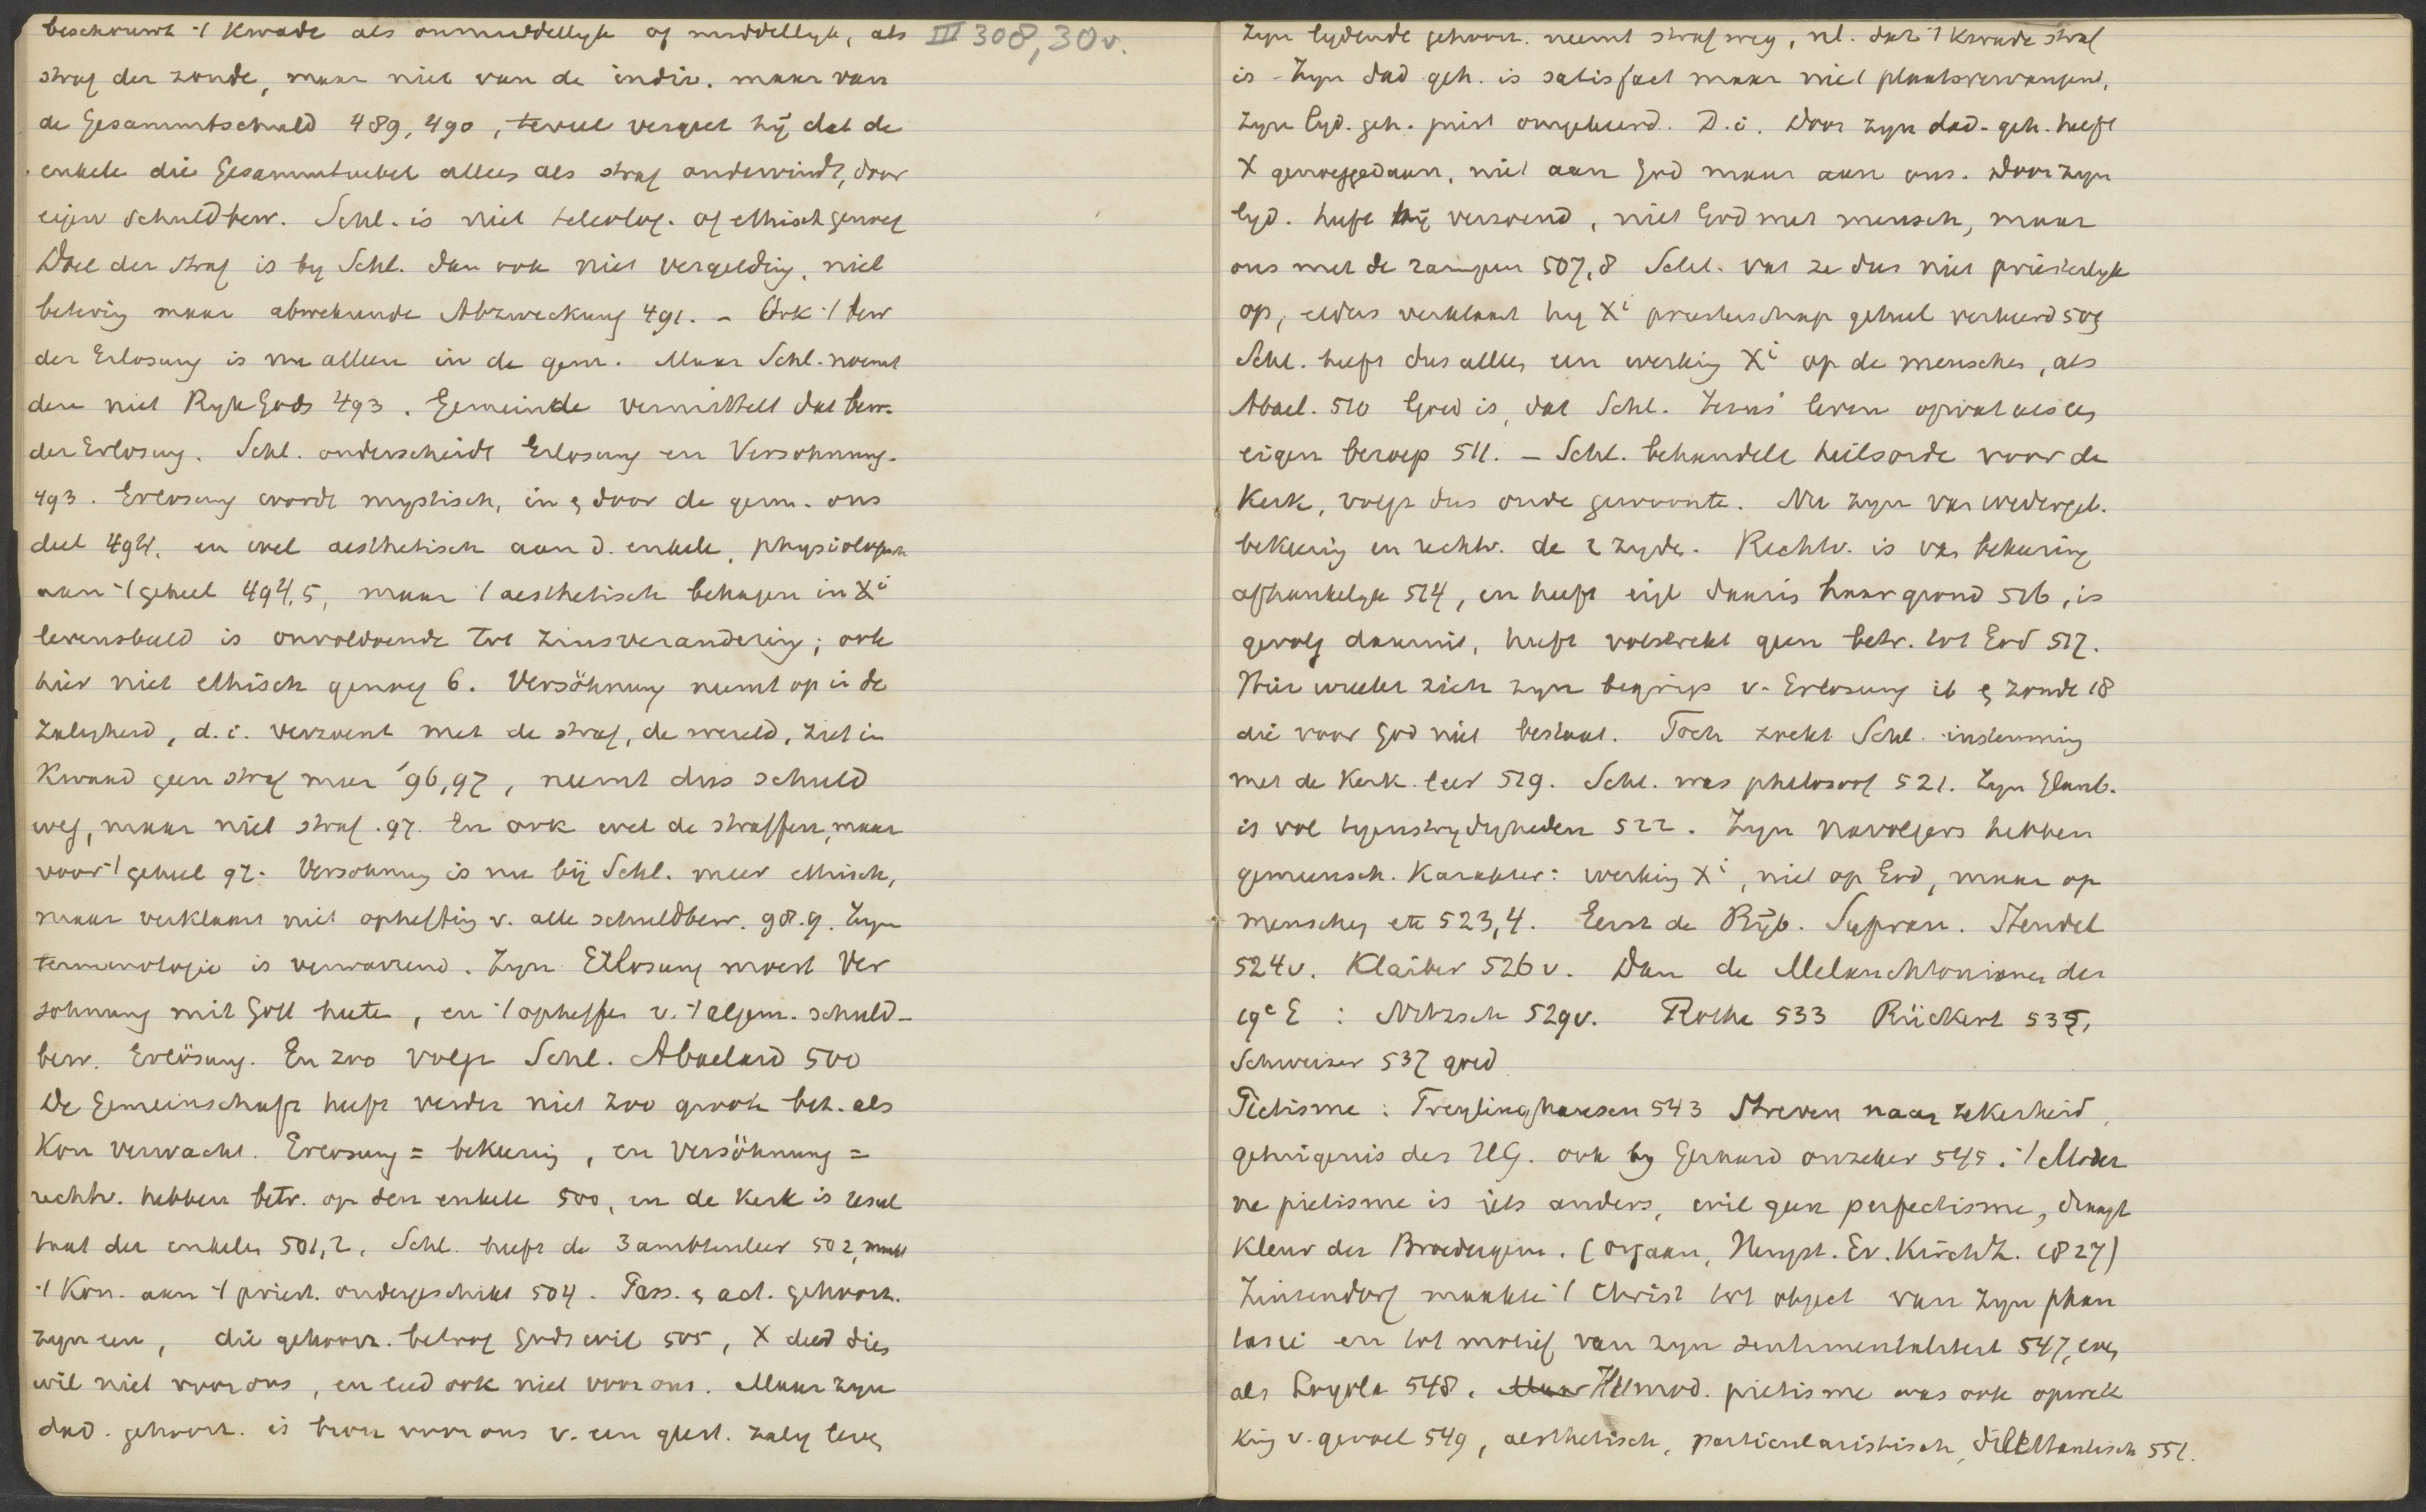 beschouwt ·/ Kwade als onmiddellyk of middellyk, als III 308, 30v.
straf der zonde, maar niet van de indiv. maar van
de Gesammtschuld 489, 490, terwl vergeet hij dat de
enkele die Gesammtuebel alles als straf ondervindt, door
eigen schuldbew. Schl. is niet teleolog. of ethisch genoeg
Doel der straf is by Schl. dan ook niet vergelding, niet
betering maar abwehrende Abzweckung 491. - Ook ·/ bew
der Erlosung is nu alleen in de gem. Maar Schl. noemt
deze niet Ryk Gods 493. Gemeinde vermittelt dat bew.
der Erlosung. Schl. onderscheidt Erlosung en Versohnung.
493. Erlosung wordt mystisch, in & door de gem. ons
deel 494, en wel aesthetisch aan d. enkele, physiologisch
aan ·/ geheel 494,5, maar ·/ aesthetisch behagen in Xi
levensbeeld is onvoldoende tot zinsverandering; ook
hier niet ethisch genoeg 6. Versöhnung neemt op in de
Zaligheid, d.i. verzoent met de straf, de wereld, ziet in
Kwaad geen straf meer '96,97, neemt dus schuld
weg, maar niet straf. 97. En ook wel de straffen, maar
voor ·/ geheel 97. Versohnung is nu bij Schl. meer ethisch,
maar verklaart niet opheffing v. alle schuldbew. 98.9. Zyn
terminologie is verwarrend. Zyn Erlosung moest Ver
sohnung mit Gott heete, en ·/ opheffen v. ·/ algem. schuld-
bew. Erlösung. En zoo volgt Schl. Abaelard 500
De Gemeinschaft heeft verder niet zoo groote bet. als
Kon verwacht. Erlosung = bekeering, en Versöhnung =
rechtv. hebben betr. op den enkele 500, en de Kerk is resul
taat der enkelen 501,2. Schl. heeft de 3 ambtenleer 502, maakt
·/ Kon. aan ·/ priest. ondergeschikt 504. Pass. & act. gehoorz.
zyn een, die gehoorz. betrof Gods wil 505, X deed dies
wil niet voor ons, en leed ook niet voor ons. Maar zyn
dad. gehoorz. is bron voor ons v. een geest. zalig leven
Zyn lydende gehoorz. neemt straf weg, nl. dat ·/ Kwade straf
is - Zyn dad geh. is satisfact maar niet plaatsvervangend,
Zyn lyd. geh. juist omgekeerd. D.i. Door zyn dad. geh. heeft
X genoeggedaan, niet aan God maar aan ons. Door zyn
lyd. heeft hij verzoend, niet God met mensch, maar
ons met de rampen 507,8 Schl. vat ze dus niet priesterlyk
op, elders verklaart hy Xi priesterschap geheel verkeerd 509
Schl. heeft dus alleen een werking Xi op de menschen, als
Abael. 510 Goed is, dat Schl. Jezus' leven opvat als een
eigen beroep 511. - Schl. behandelt heilsorde voor de
Kerk, volgt dus oude gewoonte. Nu zyn van wedergeb.
bekeering en rechtv. de 2 zyde. Rechtv. is van bekeering
afhankelyk 514, en heeft eigl daarin haar grond 516, is
gevolg daarvan, heeft volstrekt geen betr. tot God 517.
Hier wreekt zich zyn begrip v. Erlosung ib & zonde 18
die voor God niet bestaat. Toch zoekt Schl. instemming
met de Kerk. leer 519. Schl. was philosoof 521. Zyn Glaub.
is vol tegenstrydigheden 522. Zyn navolgers hebben
gemeensch. Karakter: werking Xi, niet op God, maar op
menschen etc 523,4. Eerst de Bijb. Supran. Steudel
524v. Klaiber 526v. Dan de Melanchtonianen der
19e E : Nitzsch 529v. Rothe 533 Rückert 535,
Schweizer 537 goed
Pietisme : Freylinghausen 543 Streven naar zekerheid,
getuigenis des HG. ook by Gerhard onzeker 545. ·/ Moder
ne pietisme is iets anders, wil geen perfectisme, draagt
kleur der Broedergem. (orgaan, Hengst. Ev. KirchZ. 1827)
Zinzendorf maakte ·/ Christ tot object van zyn phan
tasie en tot motief van zyn sentimentaliteit 547, even
als Loyola 548. Het mod. pietisme was ook opwek
king v. gevoel 549, aesthetisch, particularistisch, dilettantisch 551.